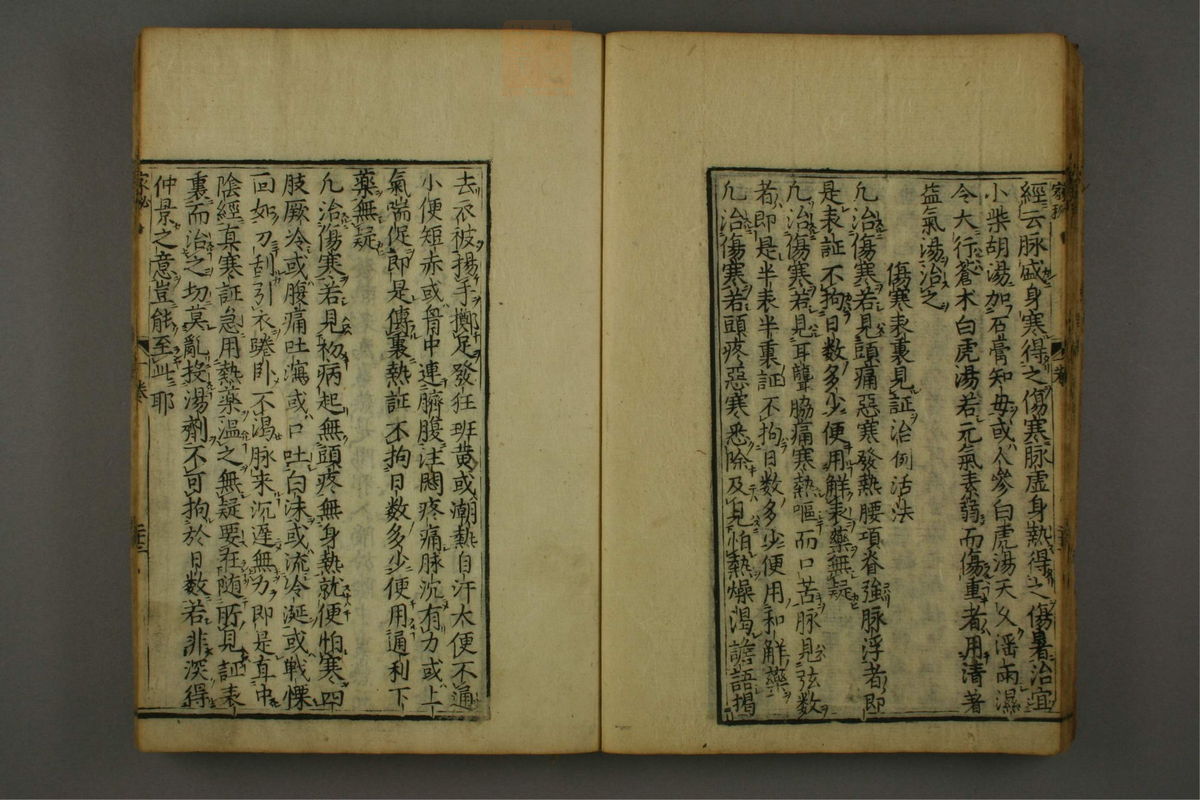 經云脉盛身寒得之傷寒脉虛身熱得之傷暑治宜
小柴胡湯加石膏知母或人參白虎湯天久滛雨濕
令大行蒼朮白虎湯若元氣素弱而傷重者用清暑
益氣湯治之
傷寒表裏見証治例活法
凢治傷寒若見頭痛惡寒發熱腰項脊強脉浮者即
是表証不拘日数多少便用解表藥無疑
凢治傷寒若見耳聾脇痛寒熱嘔而口苦脉見弦数
者即是半表半裏証不拘日数多少便用和解藥
凢治傷寒若頭疼惡寒悉除及見怕熱燥渴譫語揭
去衣被揚手擲足發狂班黄或潮熱自汗大便不通
小便短赤或胷中連臍腹注悶疼痛脉沉有力或上
氣喘促即是傳裏熱証不拘日数多少便用通利下
藥無疑
凢治傷寒若見初病起無頭疼無身熱就便怕寒四
肢厥冷或腹痛吐瀉或口吐白沫或流冷涎或戰慄
面如刀刮引衣踡卧不渴脉来沉遅無力即是直中
陰經真寒証急用熱藥溫之無疑要在随所見証表
裏而治之切莫亂投湯劑不可拘於日数若非深得
仲景之意豈能至此耶